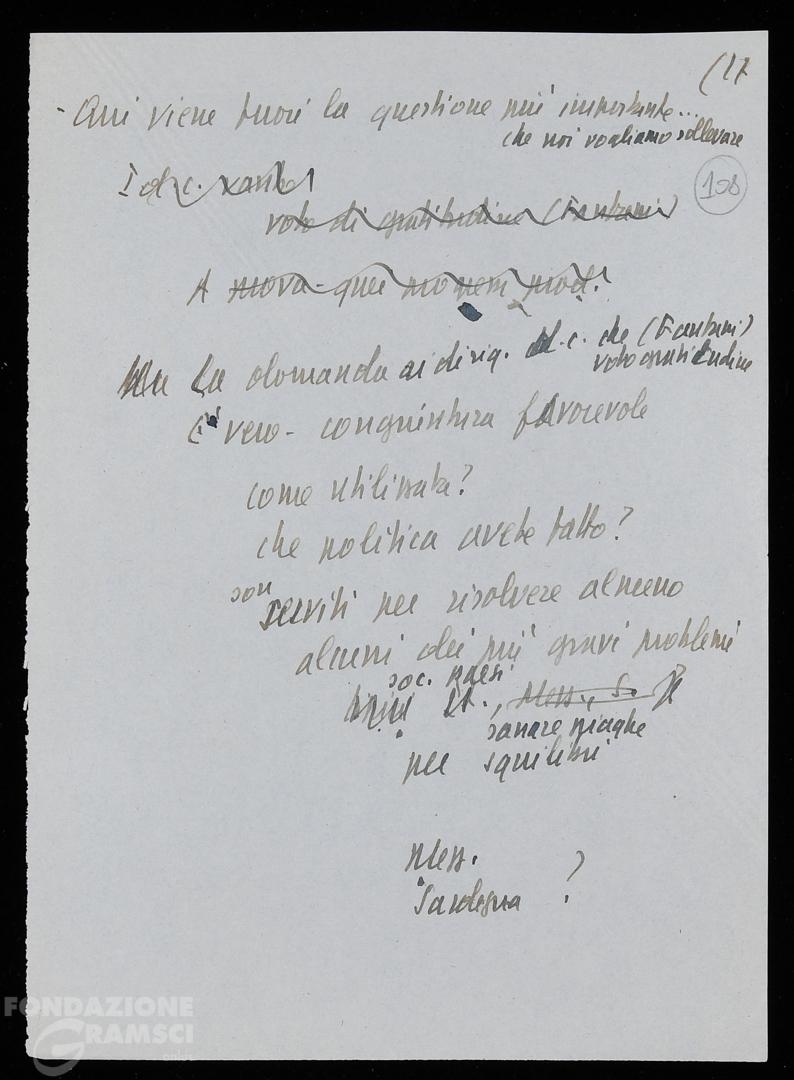 (17
- Qui viene fuori la questione più importante...
che noi vogliamo sollevare
108
I d.c.
voto di gratitudine (Fanfani)
A
La domanda ai dirig. d.c. che (Fanfani)
voto gratitudine
È vero - congiuntura favorevole
come utilizzata?
che politica avete fatto?
son
serviti per risolvere almeno
alcuni dei più gravi problemi
soc. paesi
It., Mess., S.
sanare piaghe
per squilibri
Mess.
Sardegna ?
FONDAZIONE
GRAMSCI
onlus